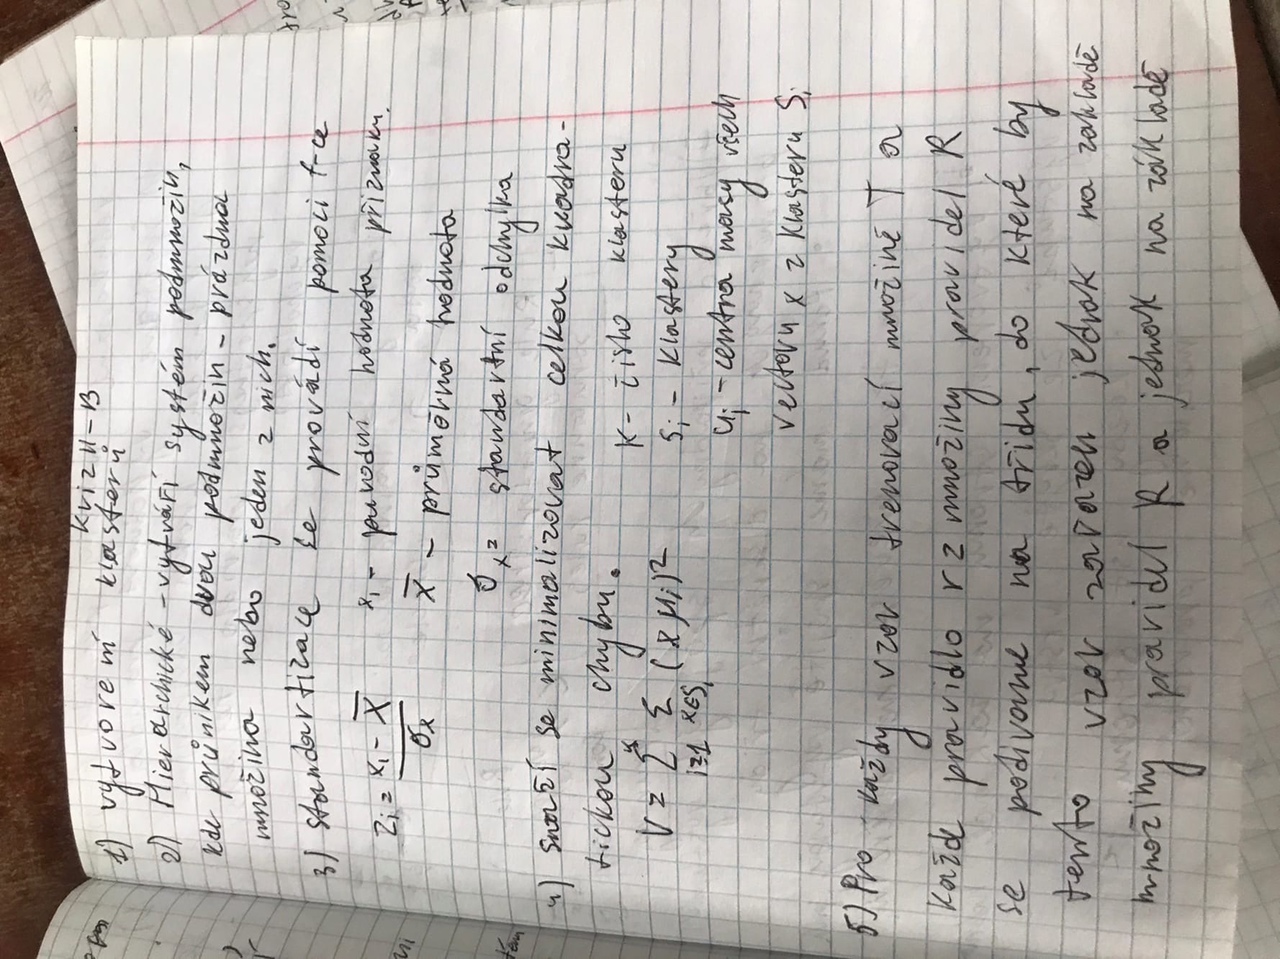 Kviz 11-B
1) vytvoření klasterů
2) Hierarchické - vytváří systém podmnožin,
kde průnikem dvou podmnožin - prázdna
množina nebo jeden z nich.
3) standartizace se provádí pomoci f-ce
zi = xi - x̄ / σx   xi - puvodní hodnota přiznaku.
x̄ - průměrná hodnota
σx = standartní odchylka
4) snaží se minimalizovat celkou kvadra-
tickou chybu.   K - čislo klasteru
V = Σ i=1 Σ x∈Si (x μi)²   Si - klastery
μi - centra masy všech
vectoru x z klasteru Si
5) Pro každy vzor trenovací množině T a
každe pravidlo r z množiny pravidel R
se podivame na třidu, do které by
tento vzor zařazen jednak na zakladě
množiny pravidel R a jednak na zákládě